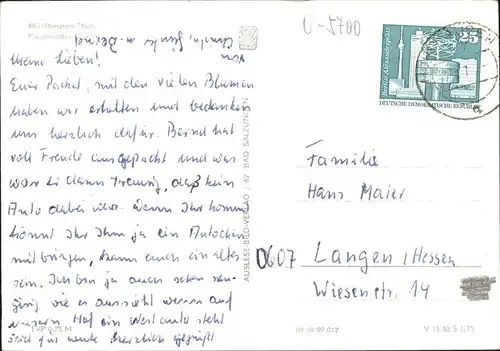 Mühlhausen Thür.
Meine Lieben!
Euer Paket, mit den vielen Blumen
haben wir erhalten und bedanken
uns herzlich dafür. Bernd hat
voll Freude ausgepackt und war
war er dann traurig, daß kein
Auto dabei war. Wenn Ihr kommt
könnt Ihr Ihm ja ein Autochen
mitbringen, kann auch ein altes
sein. Ich bin ja auch schon neu-
gierig wie es aussieht wenn auf
unserm Hof ein Westauto steht
Seid für heute herzlich gegrüßt
von
EVP 0,25 M
AUSLESE-BILD-VERLAG / 62 BAD SALZUNGEN
0-5700
25
Berlin, Alexanderplatz
DEUTSCHE DEMOKRATISCHE REPUBLIK
Familie
Hans Maier
0607 Langen/Hessen
Wiesenstr. 14
09 09 09 012
V 11 50 S 1/75